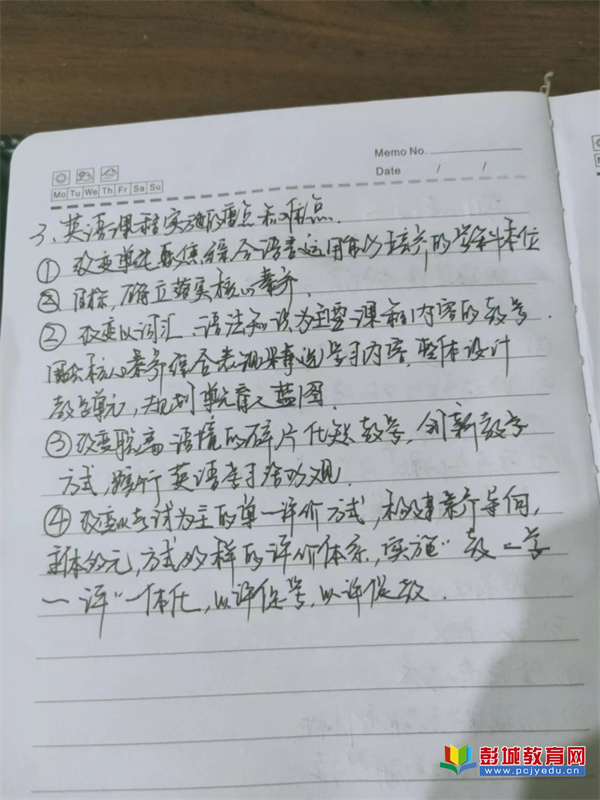 Memo No.
Date / /
Mo Tu We Th Fr Sa Su
3、英语课程实施的重点和难点.
① 改变单纯聚焦综合语言运用能力培养的学科本位
目标,确立落实核心素养.
② 改变以词汇、语法知识为主要课程内容的教学.
核心素养综合表现 学习内容,整体设计
教学单元,规划单元育人蓝图.
③ 改变脱离语境的碎片化 教学,创新教学
方式,践行英语学习活动观.
④ 改变以考试为主的单一评价方式,构建素养导向,
主体多元,方式多样的评价体系,实施"教一学
一评"一体化,以评促学,以评促教.
彭城教育网
www.pcjyedu.cn